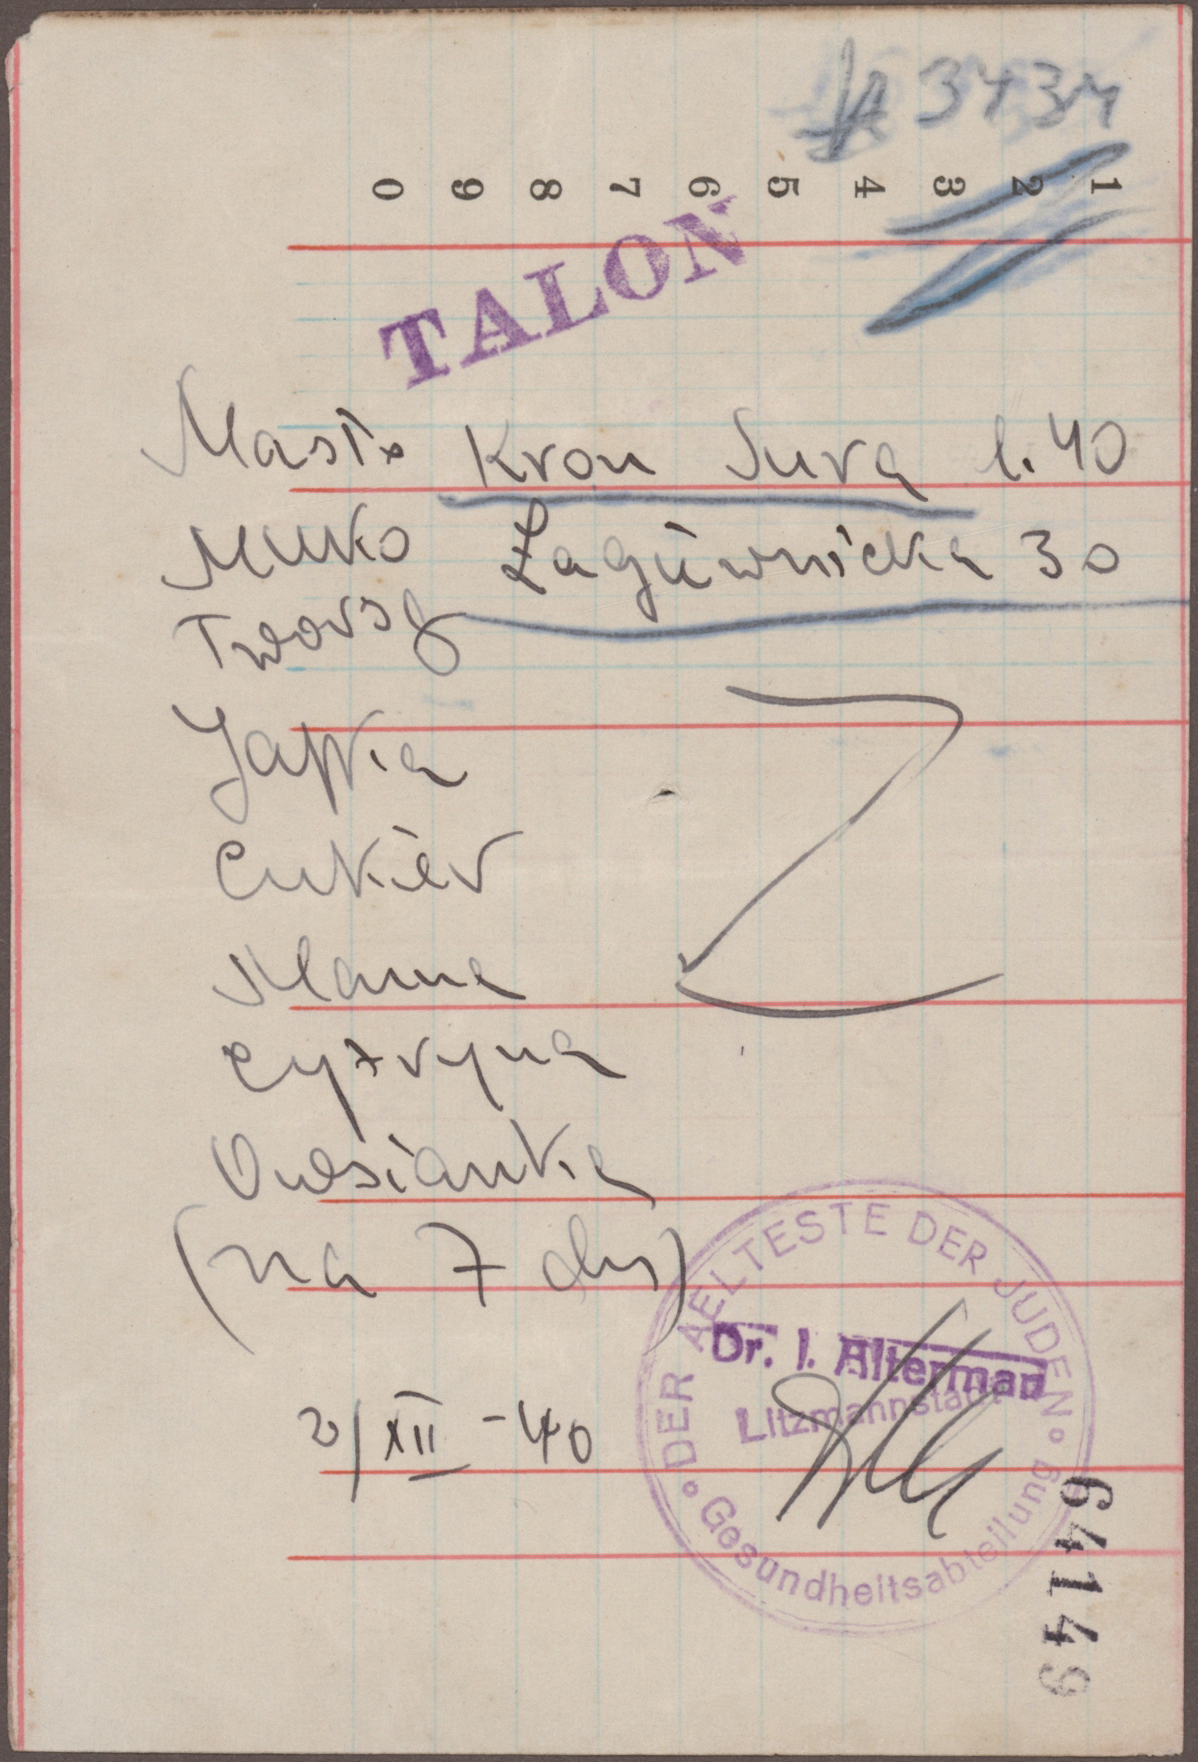 3434
0 9 8 7 6 5 4 3 2 1
TALON
Masło Kron Sura l. 40
Mleko Łagiewnicka 30
Twaróg
Jabłka
Cukier
Manna
Cytryna
Owsianka
(na 7 dni)
DER AELTESTE DER JUDEN
Dr. I. Alterman
Litzmannstadt
Gesundheitsabteilung
2/XII -40
64149